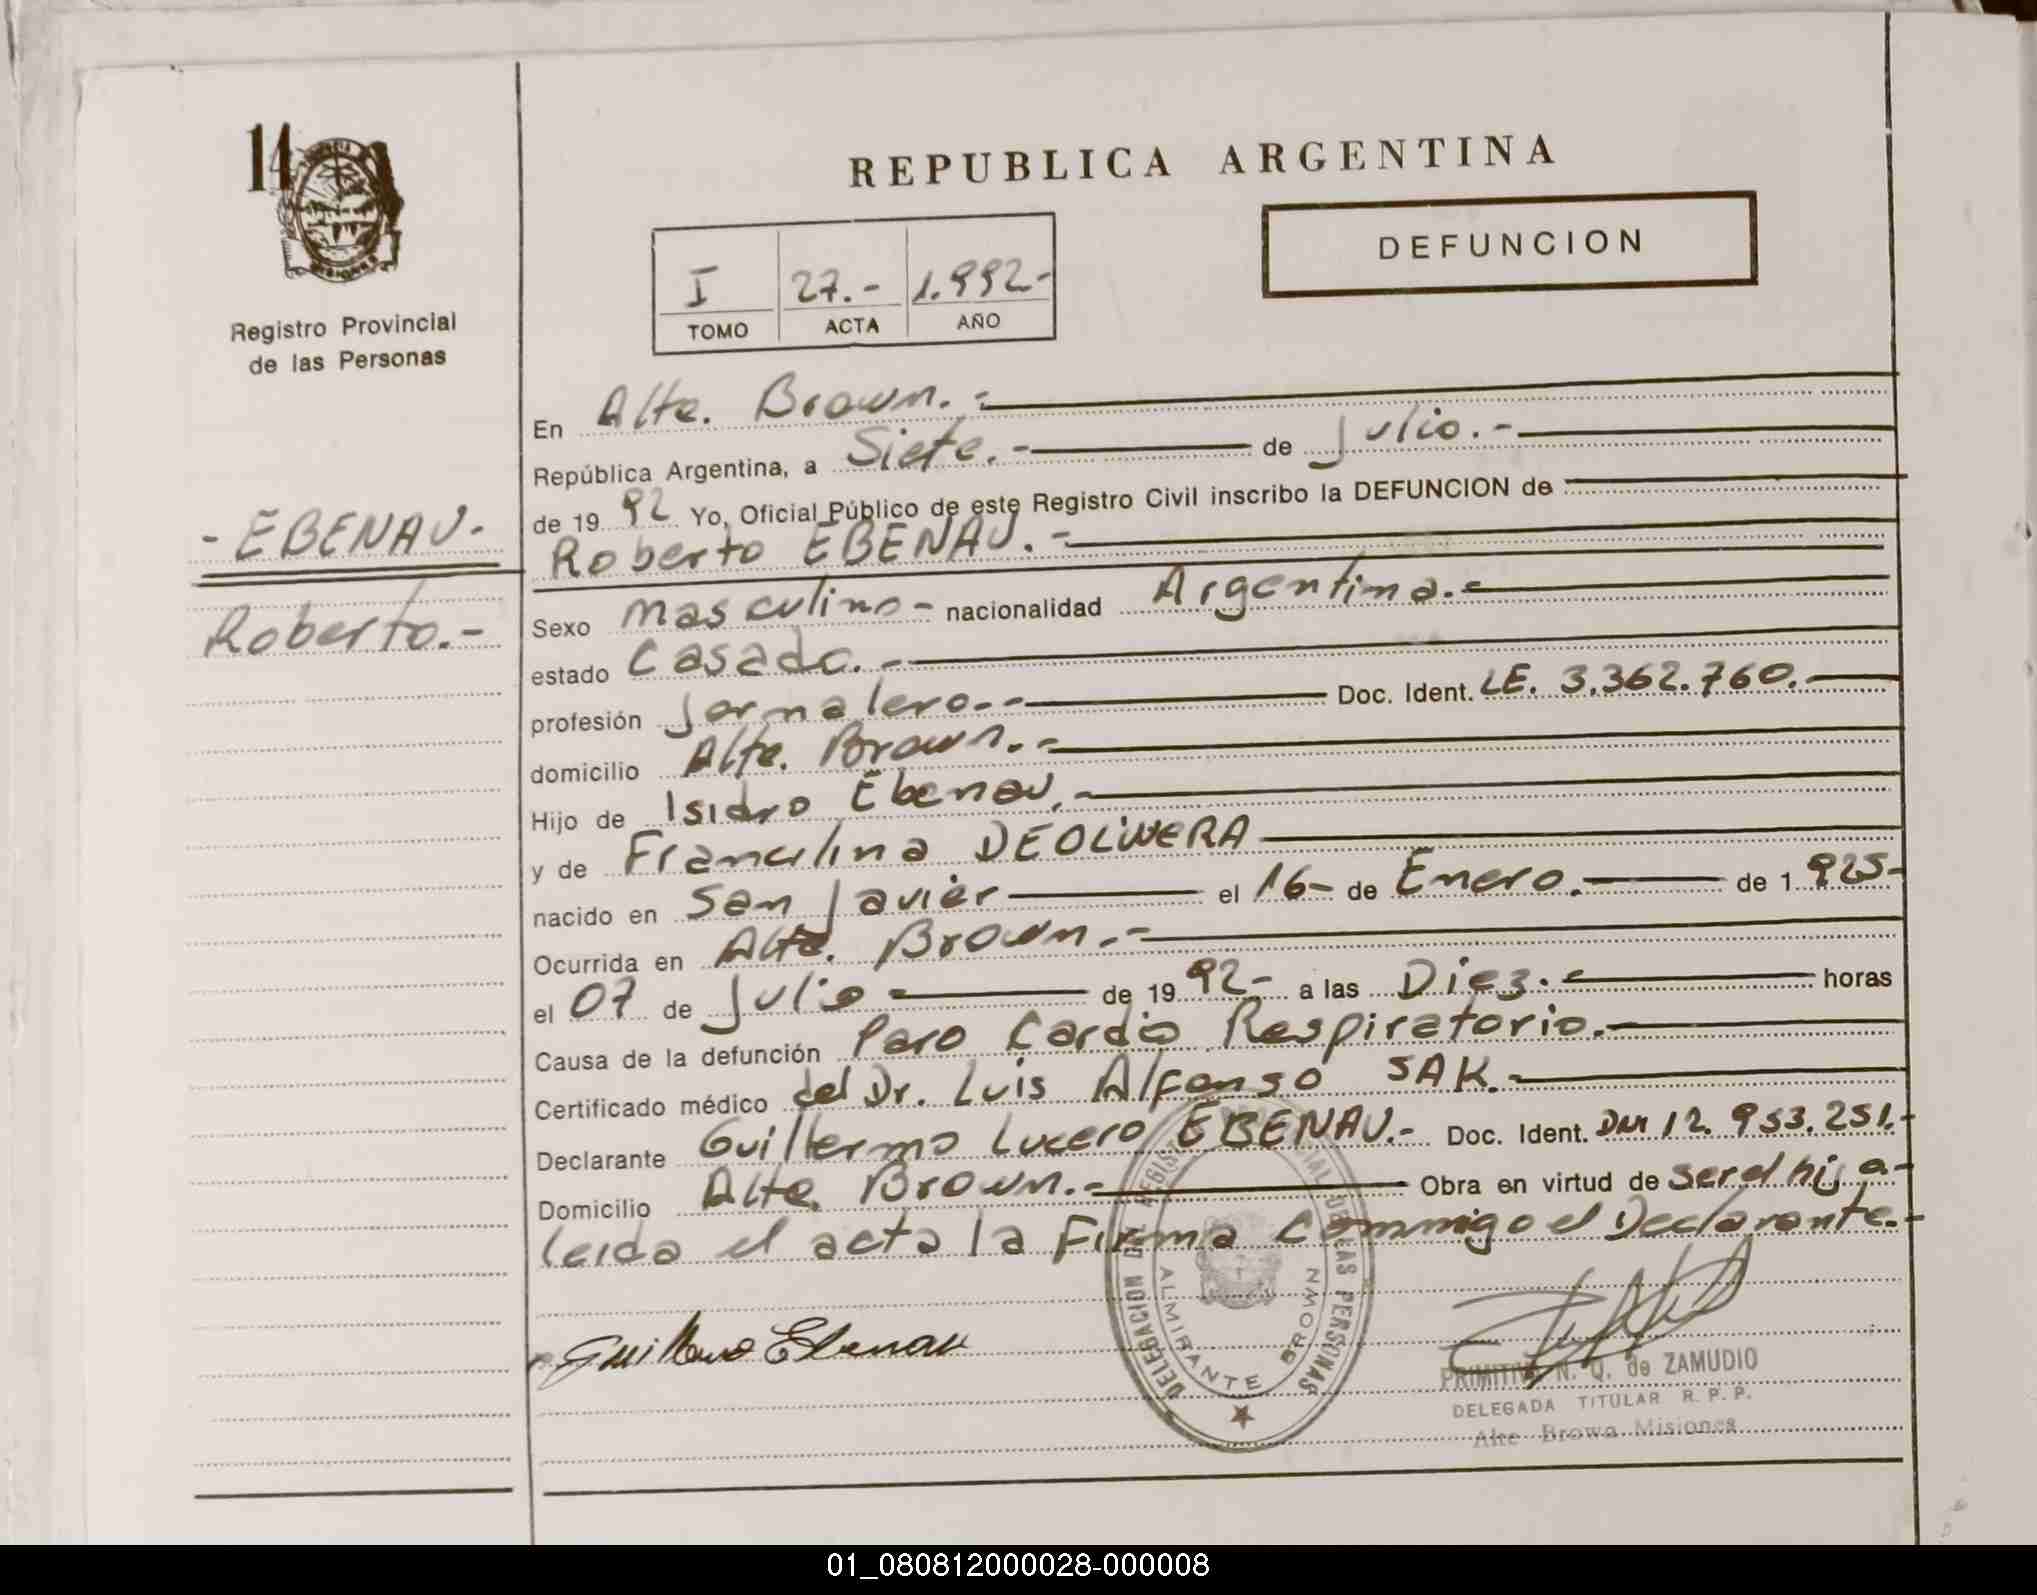 14
REPUBLICA ARGENTINA
DEFUNCION
I 27.- 1.992-
TOMO ACTA AÑO
Registro Provincial
de las Personas
-EBENAU-
Roberto.-
En Alte. Brown.-
República Argentina, a Siete.- de Julio.-
de 19 92 Yo, Oficial Público de este Registro Civil inscribo la DEFUNCION de
Roberto EBENAU.-
Sexo masculino- nacionalidad Argentina.-
estado Casado.-
profesión Jornalero.- Doc. Ident. LE. 3.362.760.-
domicilio Alte. Brown.-
Hijo de Isidro Ebenau.-
y de Francilina DEOLIVERA
nacido en San Javier el 16- de Enero.- de 1 925-
Ocurrida en Alte. Brown.-
el 07 de Julio- de 19 92- a las Diez.- horas
Causa de la defunción Paro Cardio Respiratorio.-
Certificado médico del Dr. Luis Alfonso SAK.-
Declarante Guillermo Lucero EBENAU.- Doc. Ident. DNI 12.953.251.-
Domicilio Alte. Brown.- Obra en virtud de ser el hijo-
leida el acta la Firma Conmigo el Declarante.-
Guillermo Ebenau
DELEGACION DEL REGISTRO PROVINCIAL DE LAS PERSONAS
ALMIRANTE BROWN
PRIMITIVA N. Q. de ZAMUDIO
DELEGADA TITULAR R. P. P.
Alte Brown Misiones
01_080812000028-000008